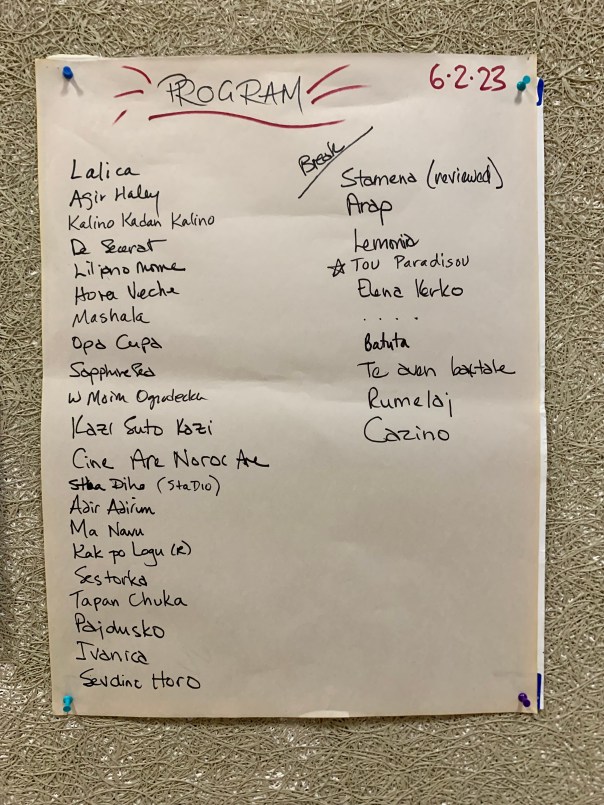 PROGRAM
6.2.23
Lalica
Agir Haley
Kalino Kadan Kalino
De Secerat
Liljano mome
Hora Veche
Mashala
Opa Cupa
Sapphire Sea
W Moim Ogrodecku
Kazi Suto Kazi
Cine Are Noroc Are
Diho (StaDio)
Adir Adirim
Ma Navu
Kak po Logu (R)
Sestorka
Tapan Chuka
Pajdusko
Ivanica
Sevdino Horo
Break
Stamena (reviewed)
Arap
Lemonia
☆ Tou Paradisou
Elena Kerko
. . . .
Batuta
Te aven baxtale
Rumelaj
Cazino